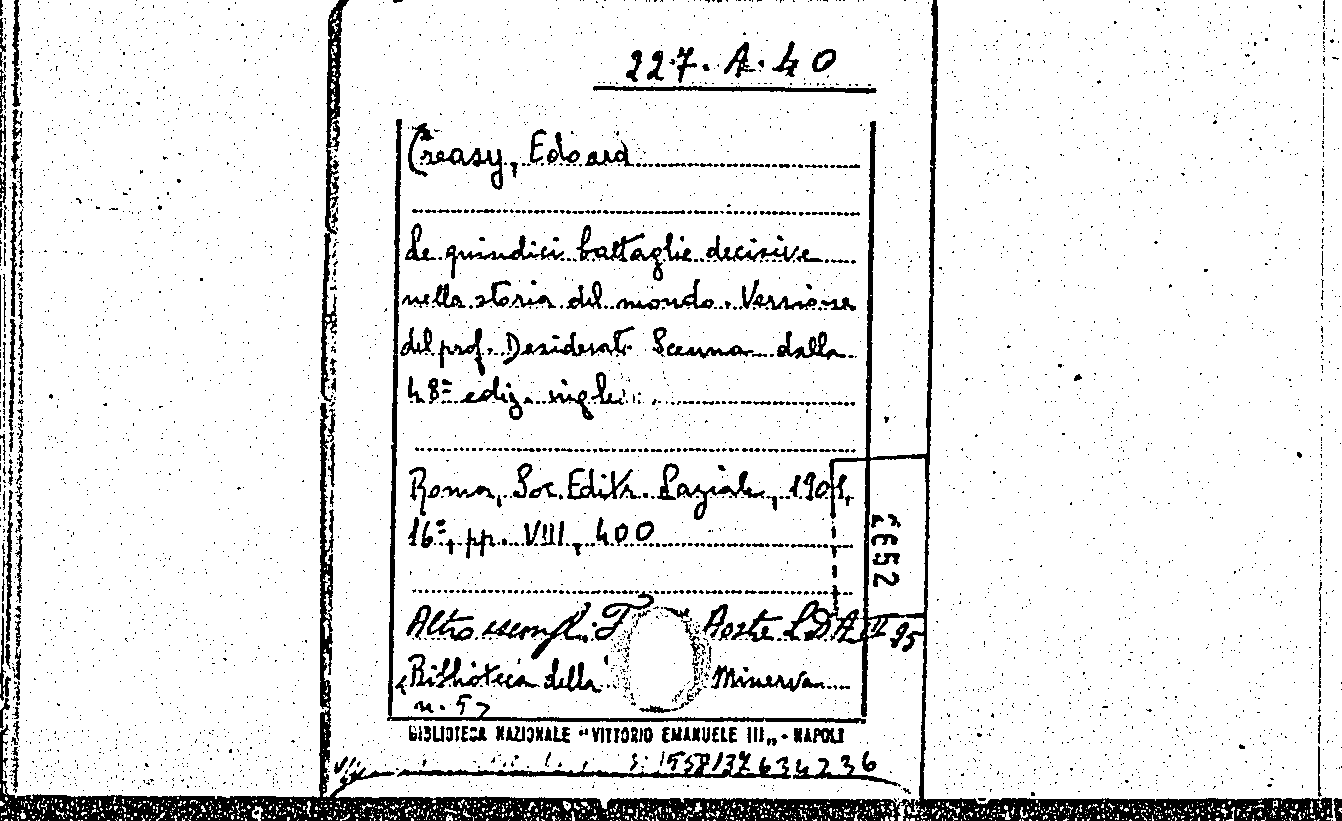 227. A. 40
Creasy, Edoard
Le quindici battaglie decisive
nella storia del mondo. Versione
del prof. Desiderato Scenna dalla
48ª ediz. ingle
Roma, Soc. Editr. Laziale, 190
16º, pp. VIII, 400
2652
Altro esempl.: F Aosta L D A II 95
Biblioteca della Minerva
n. 5
BIBLIOTECA NAZIONALE "VITTORIO EMANUELE III„ - NAPOLI